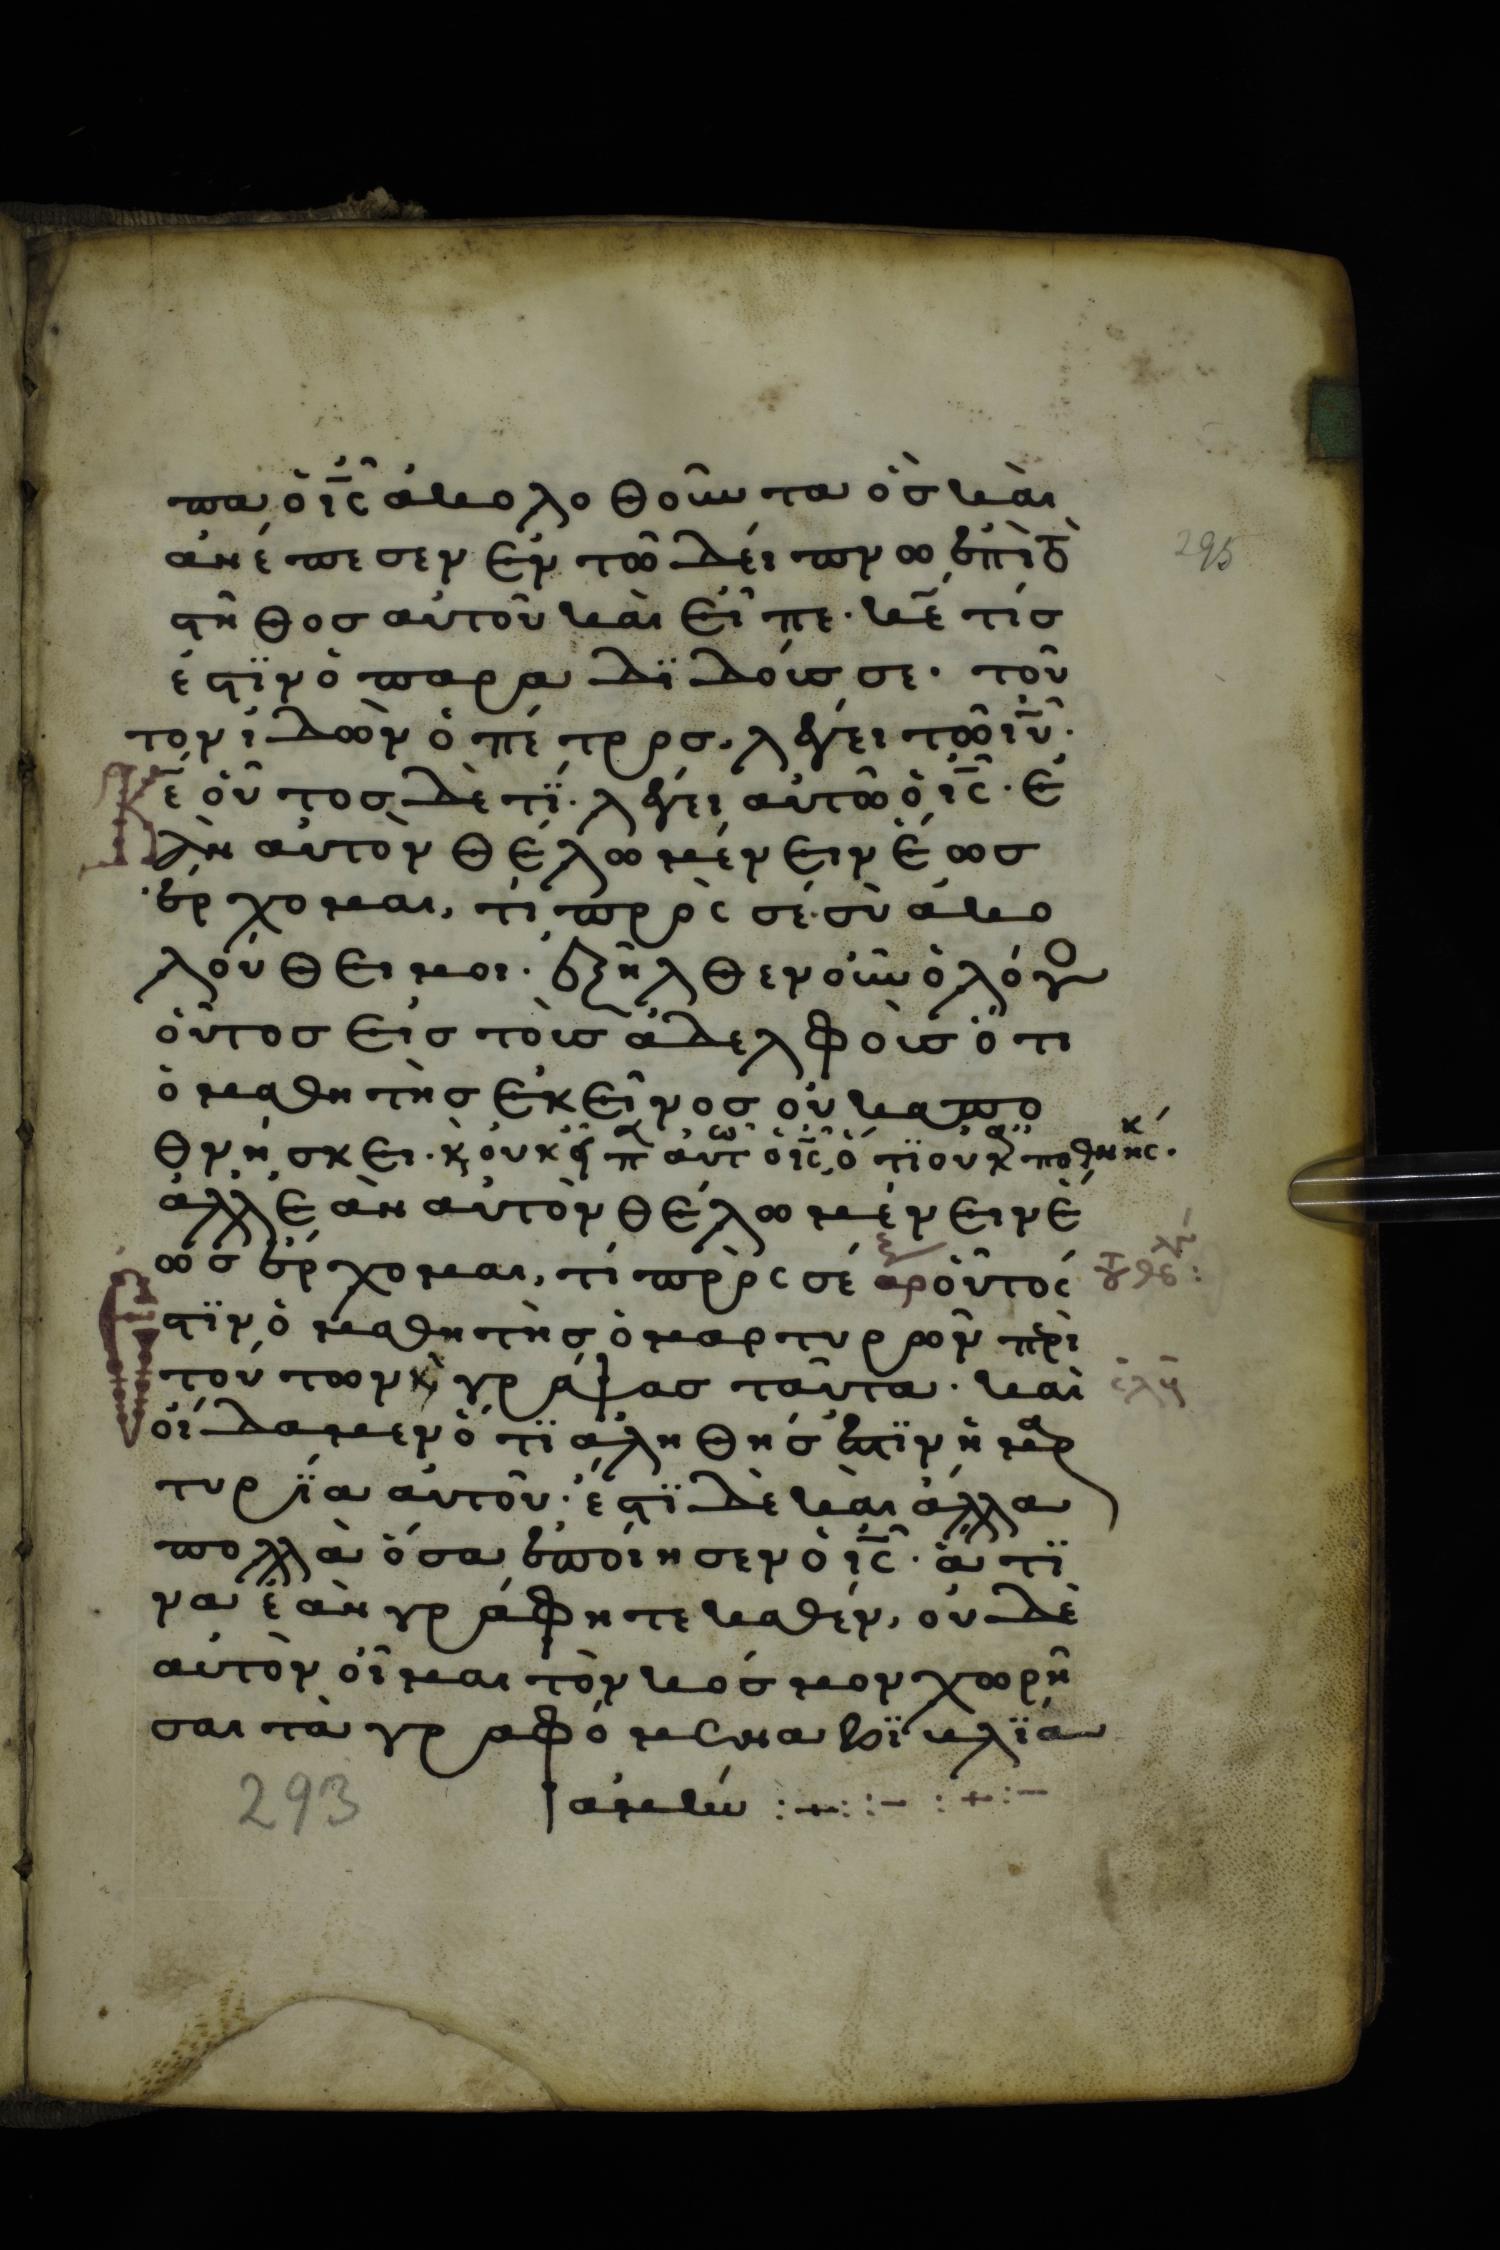 πα ὁ ις̅ ἀκολοθοῦντα ὃσ καὶ
ἀνέπεσεν ἐν τῶ δείπνω ἐπὶ τὸ
στῆθοσ αὐτοῦ καὶ εἶπε· κε̅ τίσ
ἐστϊν ὁ παραδϊδούσ σε· τοῦ
τον ἰδὼν ὁ πέτροσ, λέγει τῶ ιυ̅·
κε̅ οὗτοσ δὲ τΐ· λέγει αὐτῶ ὁ ις̅· ἐ
ὰν αὐτὸν θέλω μένειν ἕωσ
ἔρχομαι, τί πρὸς σέ· σὺ ἀκο
λούθει μοι· ἐξῆλθεν οὖν ὁ λόγο
οὗτοσ εἰσ τοὺσ ἀδελφοὺσ ὅτι
ὁ μαθητὴσ ἐκεῖνοσ οὐκ ἀπο
θνήσκει· κ̀ οὐκ εἶπ αὐτω ὁ ις̅, ὅτϊ οὐκ ἀποθνήσκ·
ἀλλ ἐὰν αὐτὸν θέλω μένειν ἕ
ωσ ἔρχομαι, τί πρὸς σέ αρ οὗτος
ἐστϊν ὁ μαθητὴσ ὁ μαρτυρῶν περὶ
τούτων κ̀ γράψας ταῦτα· καὶ
οἴδαμεν ὅτϊ ἀληθήσ ἐστϊν ἡ μαρ
τυρΐα αὐτοῦ· ἔστϊ δὲ καὶ ἄλλα
πολλὰ ὅσα ἐποίησεν ὁ ις̅· ἅ τϊ
να ἐὰν γράφητε καθέν, οὐδὲ
αὐτὸν οἶμαι τὸν κόσμον χωρῆ
σαι τὰ γραφόμενα βϊβλΐα
ἀμήν :+: :– : +:–
293
295